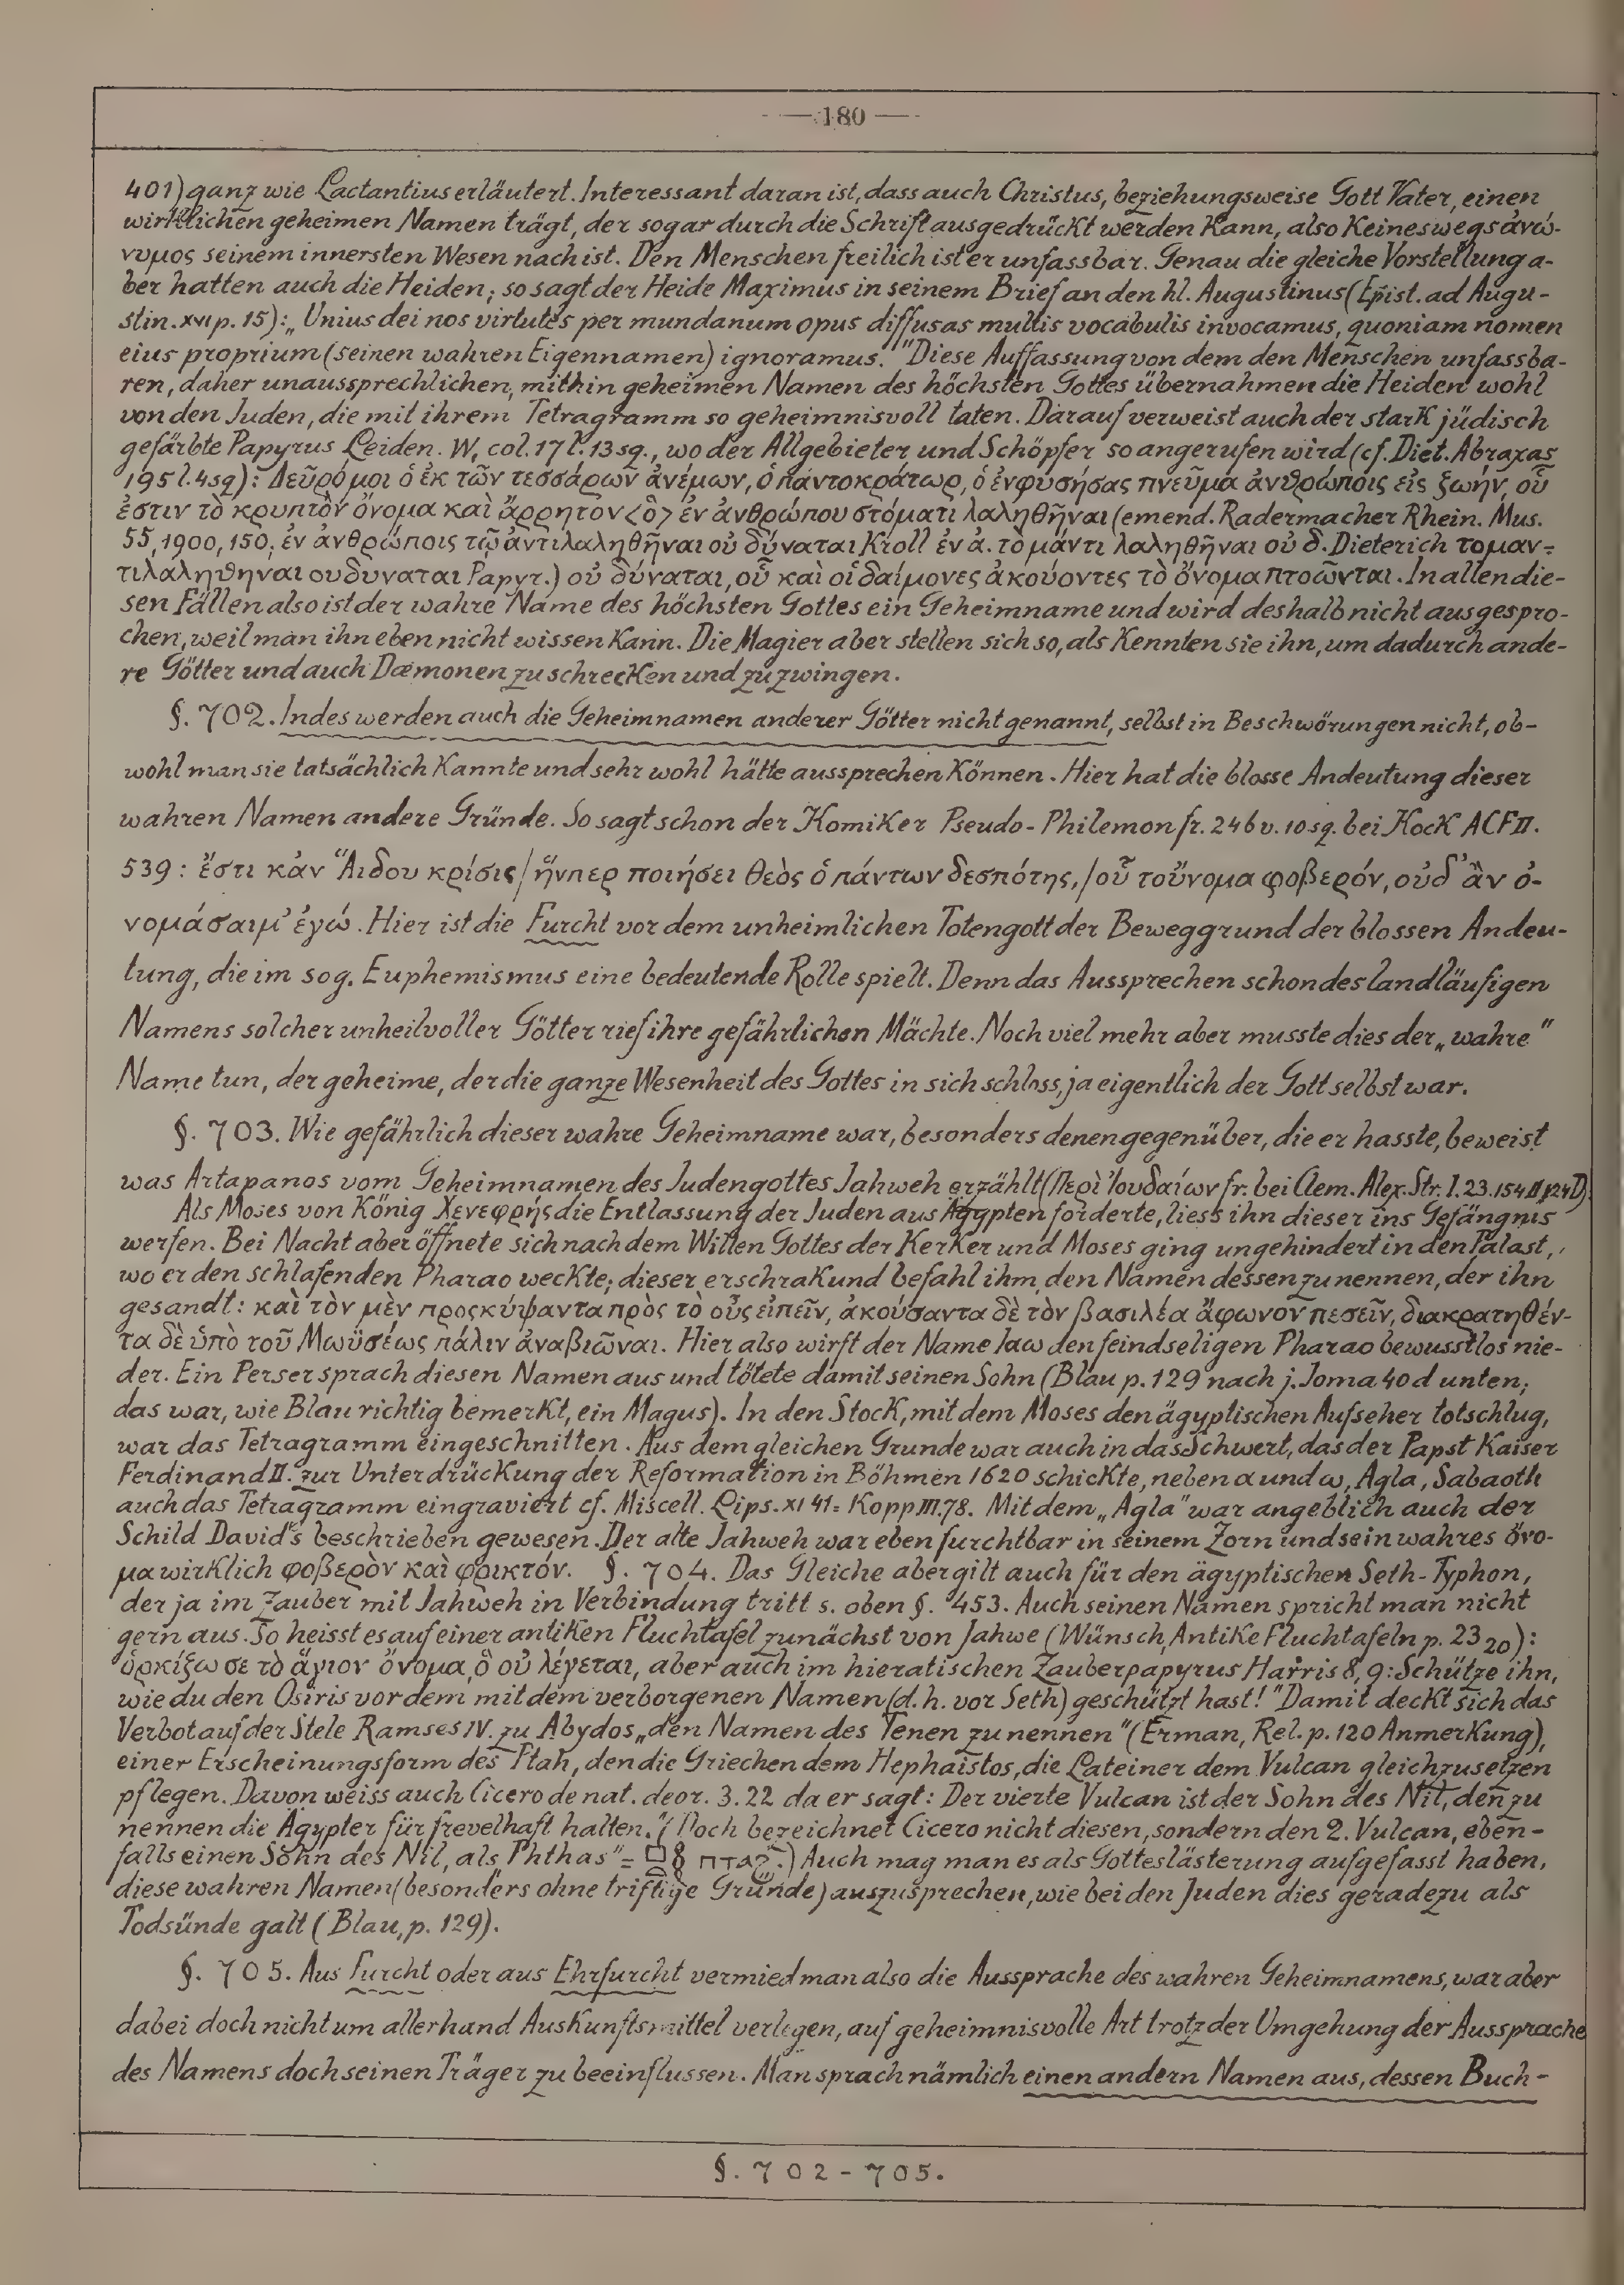 — 180 —
401) ganz wie Lactantius erläutert. Interessant daran ist, dass auch Christus, beziehungsweise Gott Vater, einen
wirklichen geheimen Namen trägt, der sogar durch die Schrift ausgedrückt werden kann, also keineswegs ἀνώ-
νυμος seinem innersten Wesen nach ist. Den Menschen freilich ist er unfassbar. Genau die gleiche Vorstellung a-
ber hatten auch die Heiden; so sagt der Heide Maximus in seinem Brief an den hl. Augustinus (Epist. ad Augu-
stin. XVI p. 15): „Unius dei nos virtutes per mundanum opus diffusas multis vocabulis invocamus, quoniam nomen
eius proprium (seinen wahren Eigennamen) ignoramus." Diese Auffassung von dem den Menschen unfassba-
ren, daher unaussprechlichen, mithin geheimen Namen des höchsten Gottes übernahmen die Heiden wohl
von den Juden, die mit ihrem Tetragramm so geheimnisvoll taten. Darauf verweist auch der stark jüdisch
gefärbte Papyrus Leiden. W, col. 17 l. 13 sq., wo der Allgebieter und Schöpfer so angerufen wird (cf. Diet. Abraxas
195 l. 4 sq): Δεῦρό μοι ὁ ἐκ τῶν τεσσάρων ἀνέμων, ὁ παντοκράτωρ, ὁ ἐνφυσήσας πνεῦμα ἀνθρώποις εἰς ζωήν, οὗ
ἐστιν τὸ κρυπτὸν ὄνομα καὶ ἄρρητον <ὃ> ἐν ἀνθρώπου στόματι λαληθῆναι (emend. Radermacher Rhein. Mus.
55, 1900, 150; ἐν ἀνθρώποις τῷ ἀντιλαληθῆναι οὐ δύναται Kroll ἐν ἀ. τὸ μάντι λαληθῆναι οὐ δ. Dieterich τομαν-
τιλαληθηναι ουδυναται Papyr.) οὐ δύναται, οὗ καὶ οἱ δαίμονες ἀκούοντες τὸ ὄνομα πτοῶνται. In allen die-
sen Fällen also ist der wahre Name des höchsten Gottes ein Geheimname und wird deshalb nicht ausgespro-
chen, weil man ihn eben nicht wissen kann. Die Magier aber stellen sich so, als kennten sie ihn, um dadurch ande-
re Götter und auch Dæmonen zu schrecken und zu zwingen.
§. 702. Indes werden auch die Geheimnamen anderer Götter nicht genannt, selbst in Beschwörungen nicht, ob-
wohl man sie tatsächlich kannte und sehr wohl hätte aussprechen können. Hier hat die blosse Andeutung dieser
wahren Namen andere Gründe. So sagt schon der Komiker Pseudo-Philemon fr. 246 v. 10 sq. bei Kock ACF II.
539: ἔστι κἀν Ἅιδου κρίσις/ἥνπερ ποιήσει θεὸς ὁ πάντων δεσπότης,/οὗ τοὔνομα φοβερόν, οὐδ' ἂν ὀ-
νομάσαιμ' ἐγώ. Hier ist die Furcht vor dem unheimlichen Totengott der Beweggrund der blossen Andeu-
tung, die im sog. Euphemismus eine bedeutende Rolle spielt. Denn das Aussprechen schon des landläufigen
Namens solcher unheilvoller Götter rief ihre gefährlichen Mächte. Noch viel mehr aber musste dies der „wahre"
Name tun, der geheime, der die ganze Wesenheit des Gottes in sich schloss, ja eigentlich der Gott selbst war.
§. 703. Wie gefährlich dieser wahre Geheimname war, besonders denen gegenüber, die er hasste, beweist
was Artapanos vom Geheimnamen des Judengottes Jahweh erzählt (Περὶ Ἰουδαίων fr. bei Clem. Alex. Str. I. 23. 154 II p24 D).
Als Moses von König Χενεφρής die Entlassung der Juden aus Ägypten forderte, liess ihn dieser ins Gefängnis
werfen. Bei Nacht aber öffnete sich nach dem Willen Gottes der Kerker und Moses ging ungehindert in den Palast,
wo er den schlafenden Pharao weckte; dieser erschrak und befahl ihm, den Namen dessen zu nennen, der ihn
gesandt: καὶ τὸν μὲν προςκύψαντα πρὸς τὸ οὖς εἰπεῖν, ἀκούσαντα δὲ τὸν βασιλέα ἄφωνον πεσεῖν, διακρατηθέν-
τα δὲ ὑπὸ τοῦ Μωϋσέως πάλιν ἀναβιῶναι. Hier also wirft der Name Ιαω den feindseligen Pharao bewusstlos nie-
der. Ein Perser sprach diesen Namen aus und tötete damit seinen Sohn (Blau p. 129 nach j. Joma 40 d unten;
das war, wie Blau richtig bemerkt, ein Magus). In den Stock, mit dem Moses den ägyptischen Aufseher totschlug,
war das Tetragramm eingeschnitten. Aus dem gleichen Grunde war auch in das Schwert, das der Papst Kaiser
Ferdinand II. zur Unterdrückung der Reformation in Böhmen 1620 schickte, neben α und ω, Agla, Sabaoth
auch das Tetragramm eingraviert cf. Miscell. Lips. XI 41 = Kopp III. 78. Mit dem „Agla" war angeblich auch der
Schild David's beschrieben gewesen. Der alte Jahweh war eben furchtbar in seinem Zorn und sein wahres ὄνο-
μα wirklich φοβερὸν καὶ φρικτόν. §. 704. Das Gleiche aber gilt auch für den ägyptischen Seth-Typhon,
der ja im Zauber mit Jahweh in Verbindung tritt s. oben §. 453. Auch seinen Namen spricht man nicht
gern aus. So heisst es auf einer antiken Fluchtafel zunächst von Jahwe (Wünsch, Antike Fluchtafeln p. 23 20):
ὁρκίζω σε τὸ ἅγιον ὄνομα ὃ οὐ λέγεται, aber auch im hieratischen Zauberpapyrus Harris 8, 9: Schütze ihn,
wie du den Osiris vor dem mit dem verborgenen Namen (d. h. vor Seth) geschützt hast!" Damit deckt sich das
Verbot auf der Stele Ramses IV. zu Abydos „den Namen des Tenen zu nennen" (Erman, Rel. p. 120 Anmerkung),
einer Erscheinungsform des Ptah, den die Griechen dem Hephaistos, die Lateiner dem Vulcan gleichzusetzen
pflegen. Davon weiss auch Cicero de nat. deor. 3. 22 da er sagt: Der vierte Vulcan ist der Sohn des Nil, den zu
nennen die Ägypter für frevelhaft halten." (Doch bezeichnet Cicero nicht diesen, sondern den 2. Vulcan, eben-
falls einen Sohn des Nil, als „Phthas" = πτα.) Auch mag man es als Gotteslästerung aufgefasst haben,
diese wahren Namen (besonders ohne triftige Gründe) auszusprechen, wie bei den Juden dies geradezu als
Todsünde galt (Blau, p. 129).
§. 705. Aus Furcht oder aus Ehrfurcht vermied man also die Aussprache des wahren Geheimnamens, war aber
dabei doch nicht um allerhand Auskunftsmittel verlegen, auf geheimnisvolle Art trotz der Umgehung der Aussprache
des Namens doch seinen Träger zu beeinflussen. Man sprach nämlich einen andern Namen aus, dessen Buch-
§. 702-705.